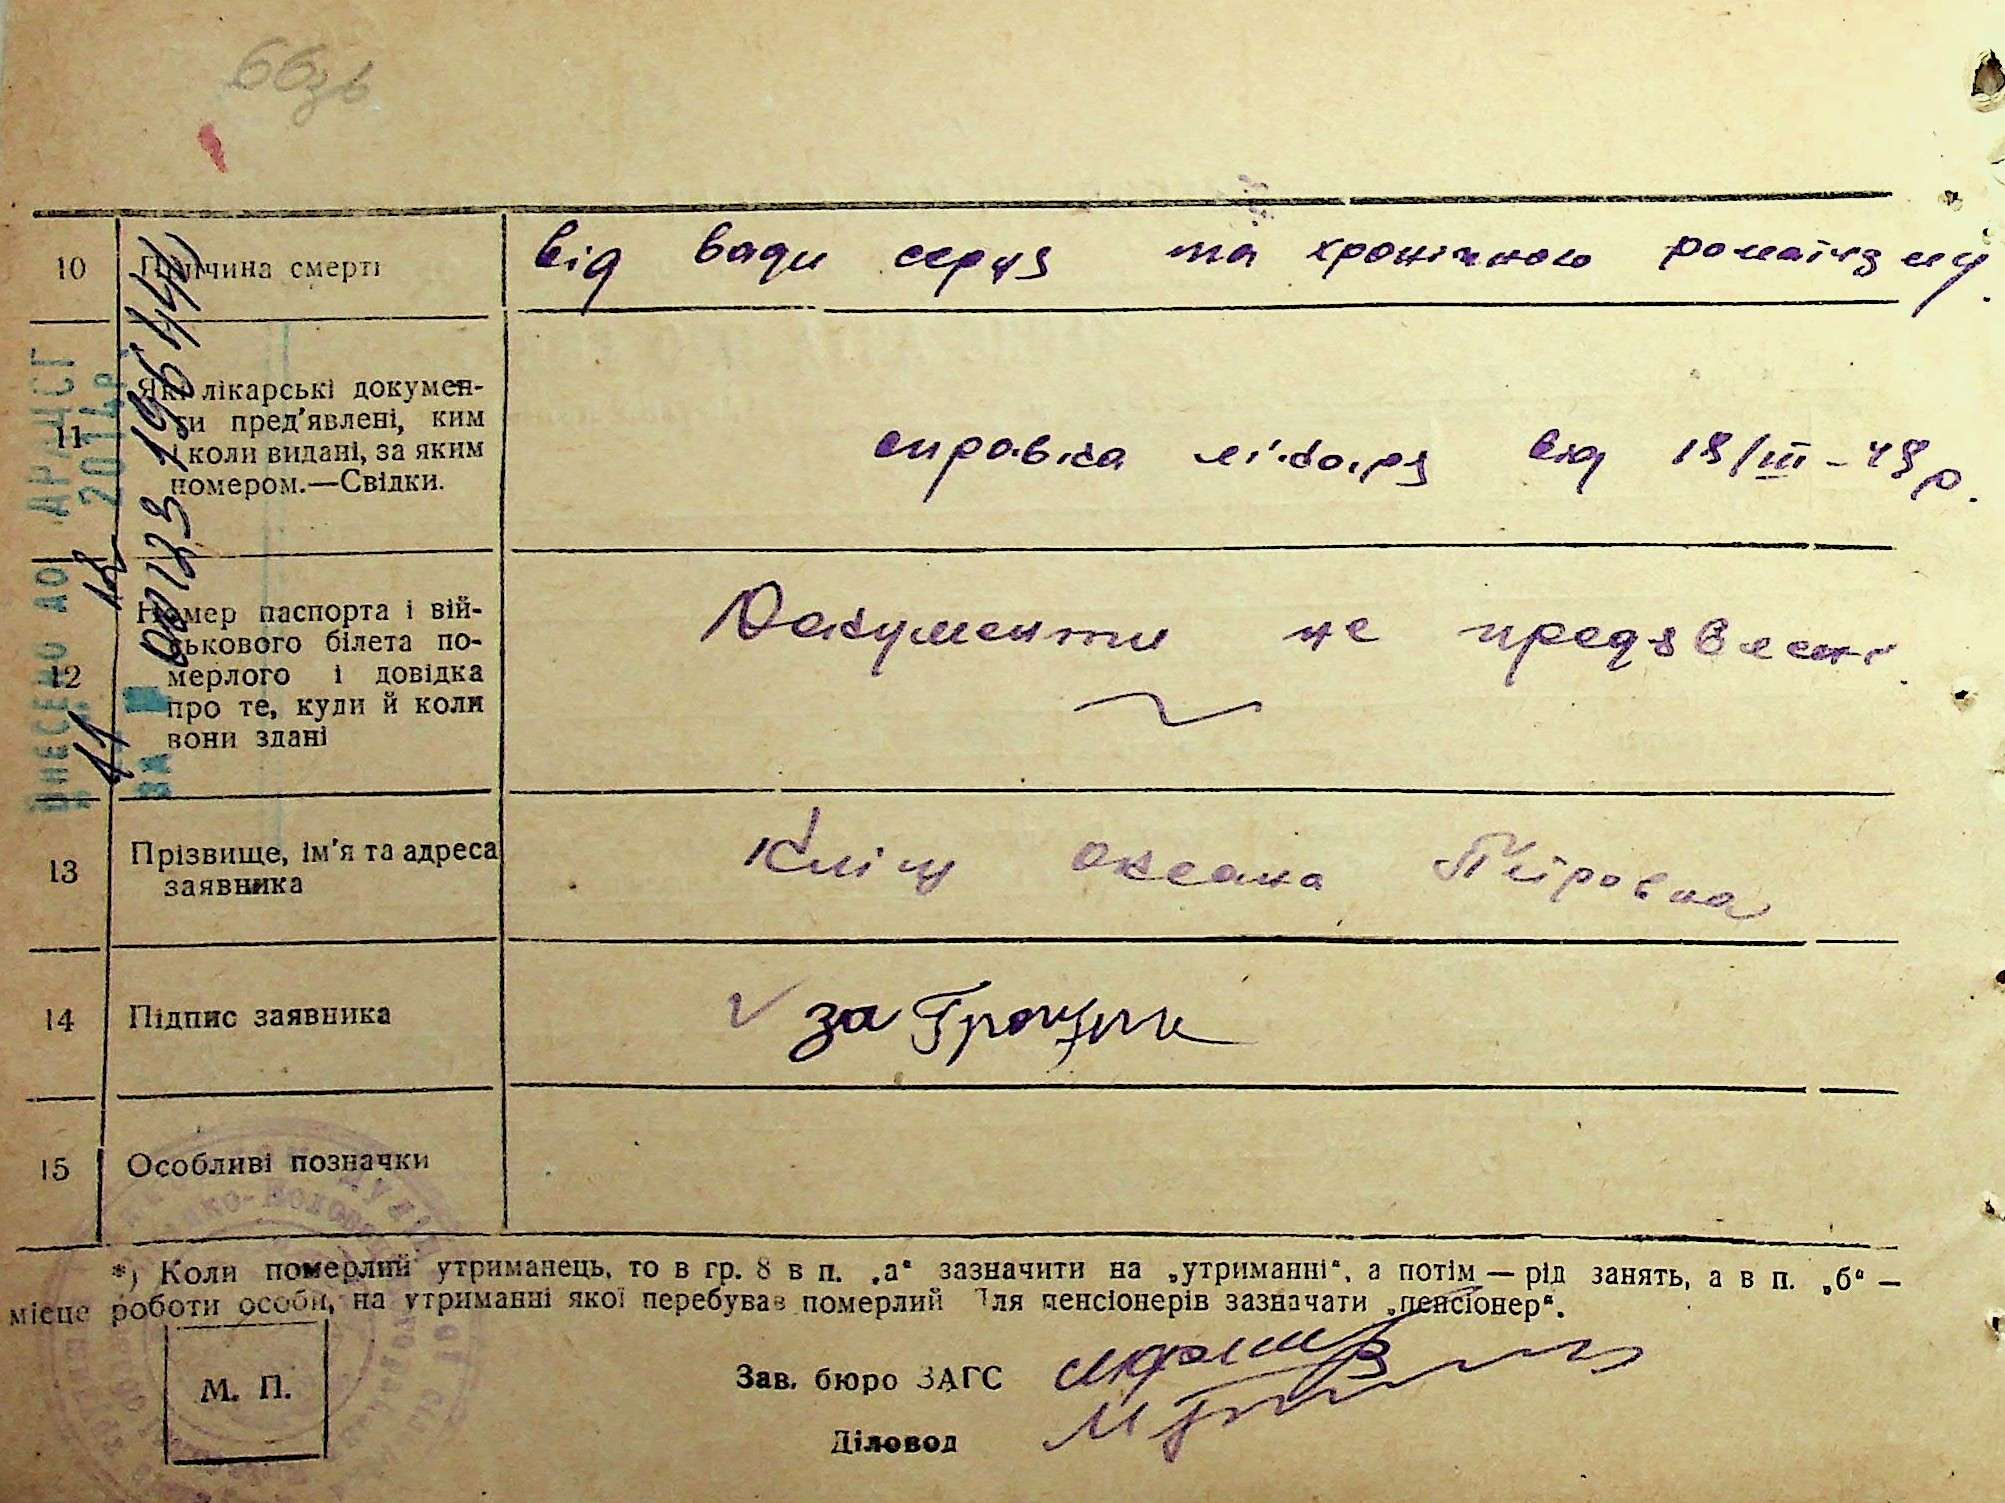 10 Причина смерті від вади серця та хронічного
11 Які лікарські докумен-
ти пред'явлені, ким
і коли видані, за яким
номером.—Свідки.
справка лікаря від 18/III-49 р.
12 Номер паспорта і вій-
ськового білета по-
мерлого і довідка
про те, куди й коли
вони здані
Документи не предявлені
13 Прізвище, ім'я та адреса
заявника
Кліщ Оксана Петровна
14 Підпис заявника
за
15 Особливі позначки
*) Коли померлий утриманець, то в гр. 8 в п. „а“ зазначити на „утриманні“, а потім — рід занять, а в п. „б“ —
місце роботи особи, на утриманні якої перебував померлий Для пенсіонерів зазначати „пенсіонер“.
М. П.
Зав. бюро ЗАГС
Діловод
ВНЕСЕНО ДО ДРАЦСГ
11 12 2014 р
ЗА № 00123196444